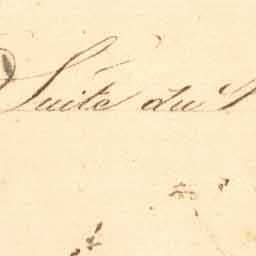 Suite du